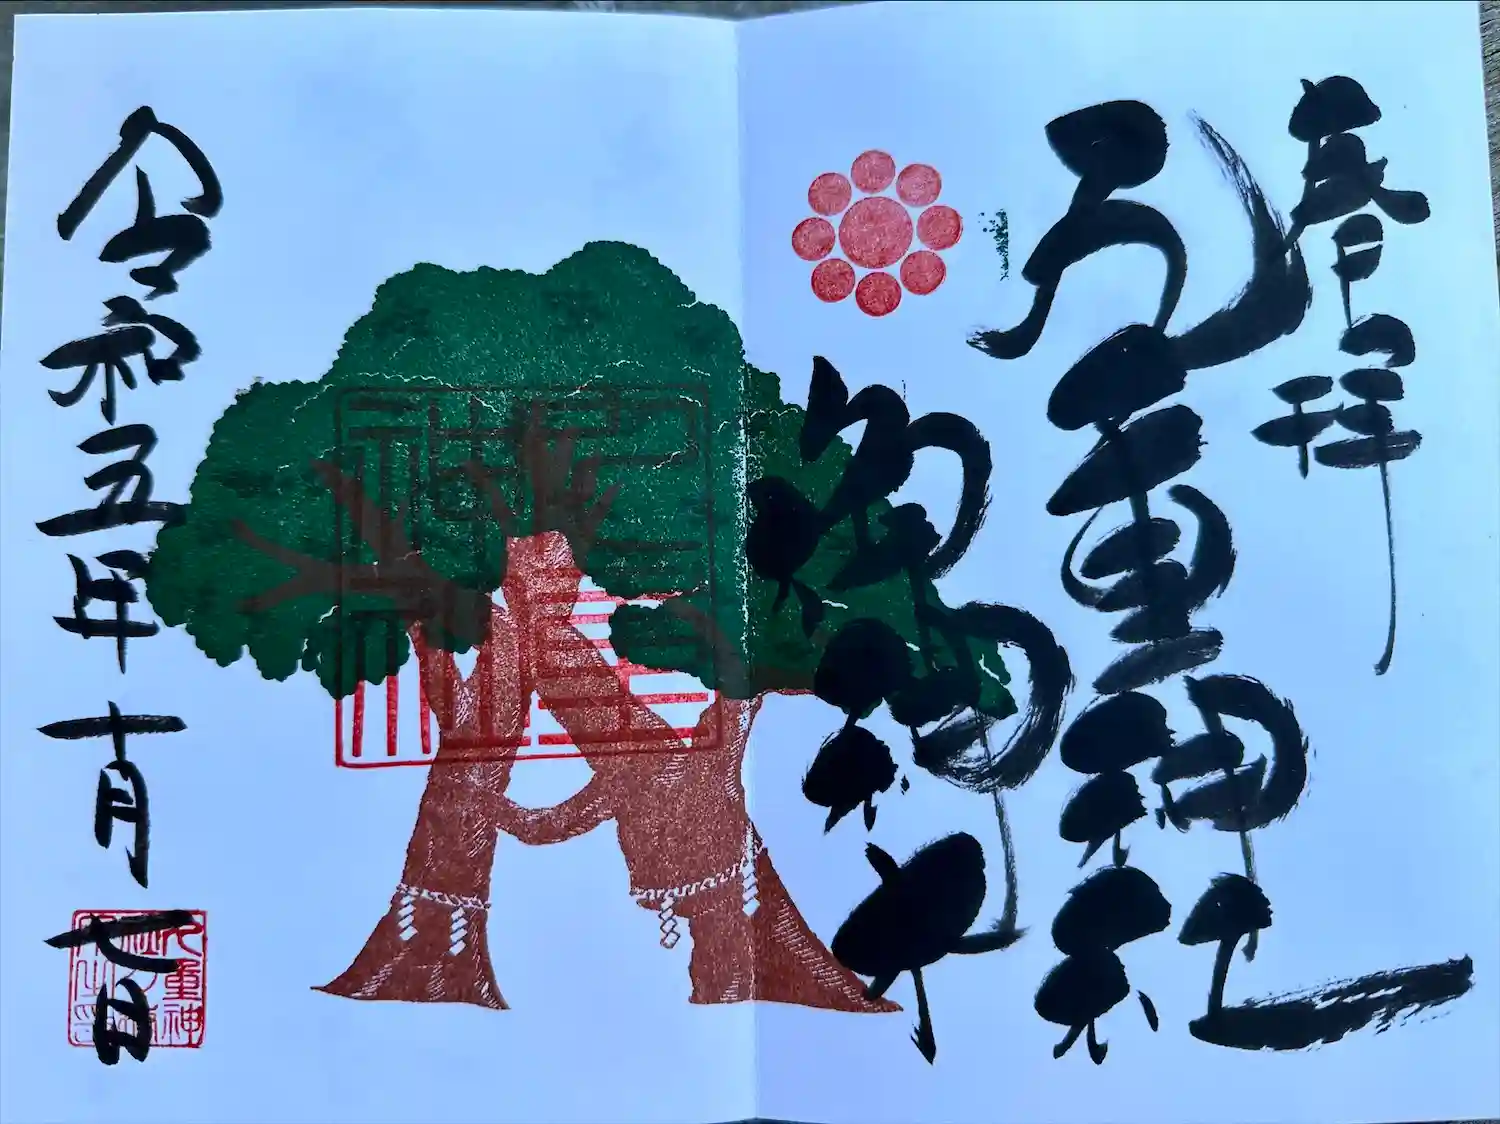 奉拝
九重神社
御神木
令和五年十月七日
九重神